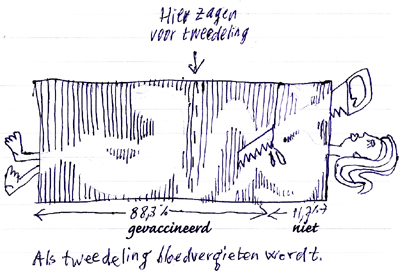 Hier zagen
voor tweedeling
88,3% 11,7%
gevaccineerd niet
Als tweedeling bloedvergieten wordt.